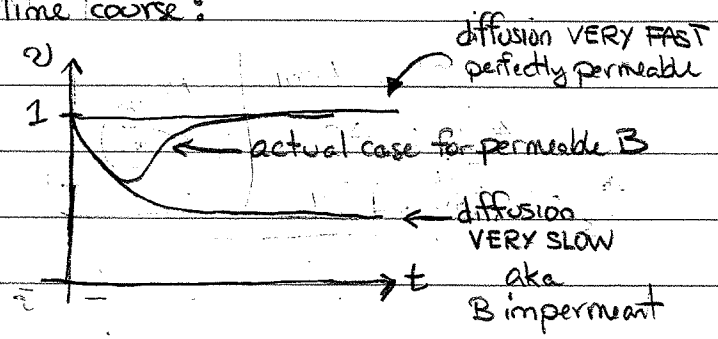 Time course:
diffusion VERY FAST
perfectly permeable
v
1
actual case for permeable B
diffusion
VERY SLOW
t
aka
B impermeant